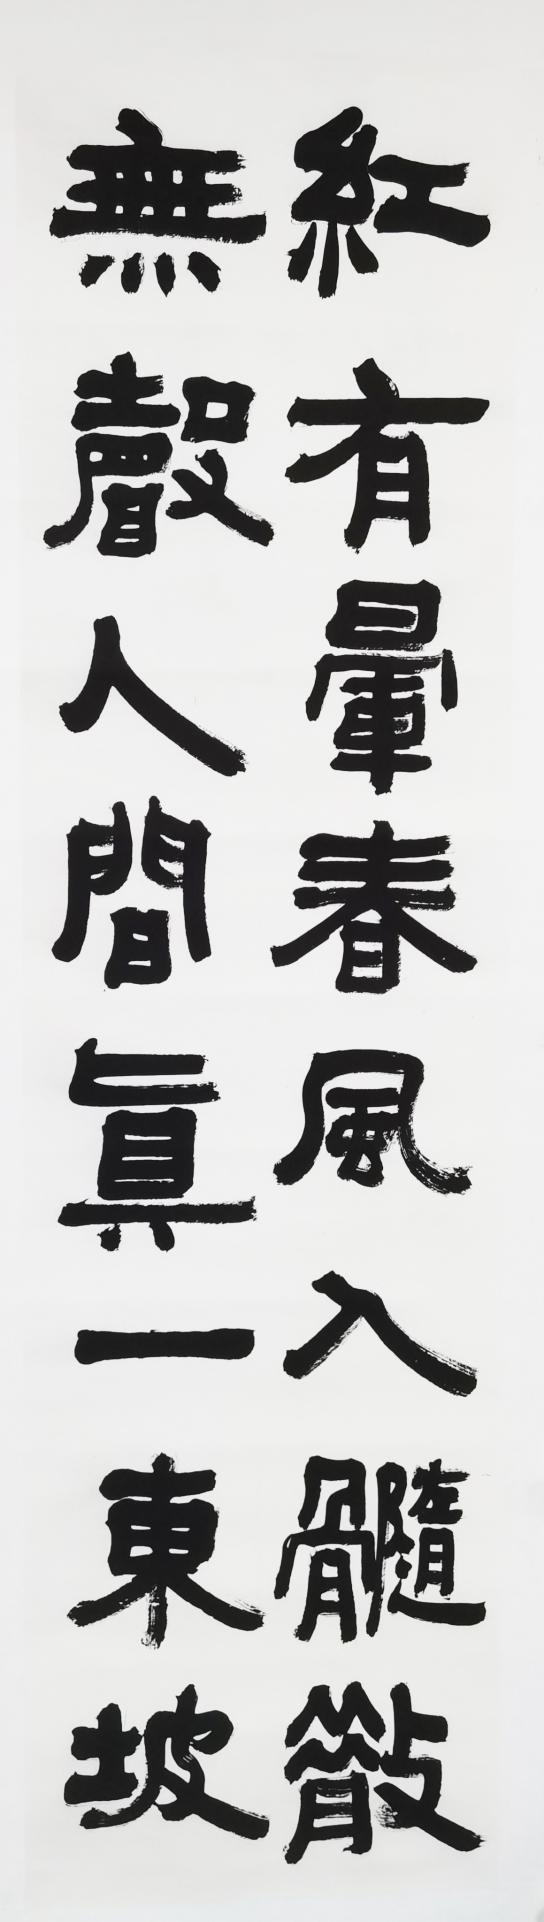 紅有暈春風入髓散
無聲人間眞一東坡